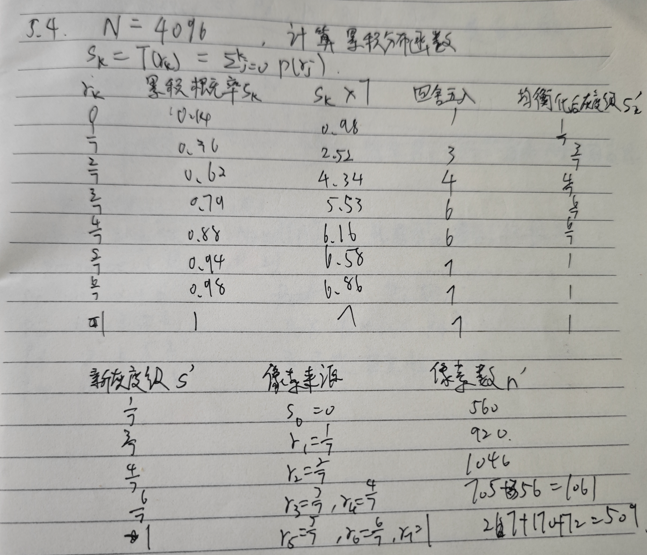 5.4. N = 4096 , 计算累积分布函数
S_k = T(r_k) = Σ^k_{j=0} p(r_j).
r_k 累积概率S_k S_k×7 四舍五入 均衡化后灰度级 S_k'
0 0.14 0.98 1 1/7
1/7 0.36 2.52 3 3/7
2/7 0.62 4.34 4 4/7
3/7 0.79 5.53 6 6/7
4/7 0.88 6.16 6 6/7
5/7 0.94 6.58 7 1
6/7 0.98 6.86 7 1
1 1 7 7 1
新灰度级 S' 像素来源 像素数 n'
1/7 S_0=0 560
3/7 r_1=1/7 920.
4/7 r_2=2/7 1046
6/7 r_3=3/7, r_4=4/7 705+356=1061
1 r_5=5/7, r_6=6/7, r_7=1 267+170+72=509